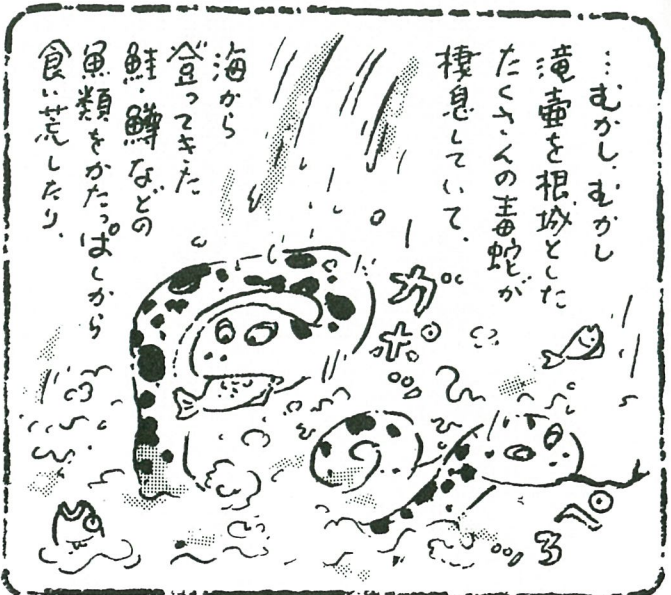 …むかし、むかし
滝壷を根城とした
たくさんの毒蛇が
棲息していて、
海から
登ってきた
鮭・鱒などの
魚類をかたっぱしから
食い荒したり、
ガポ
ペロ